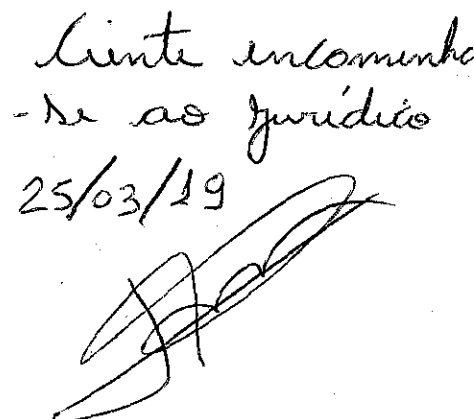 Ciente encaminha
-se ao Jurídico
25/03/19